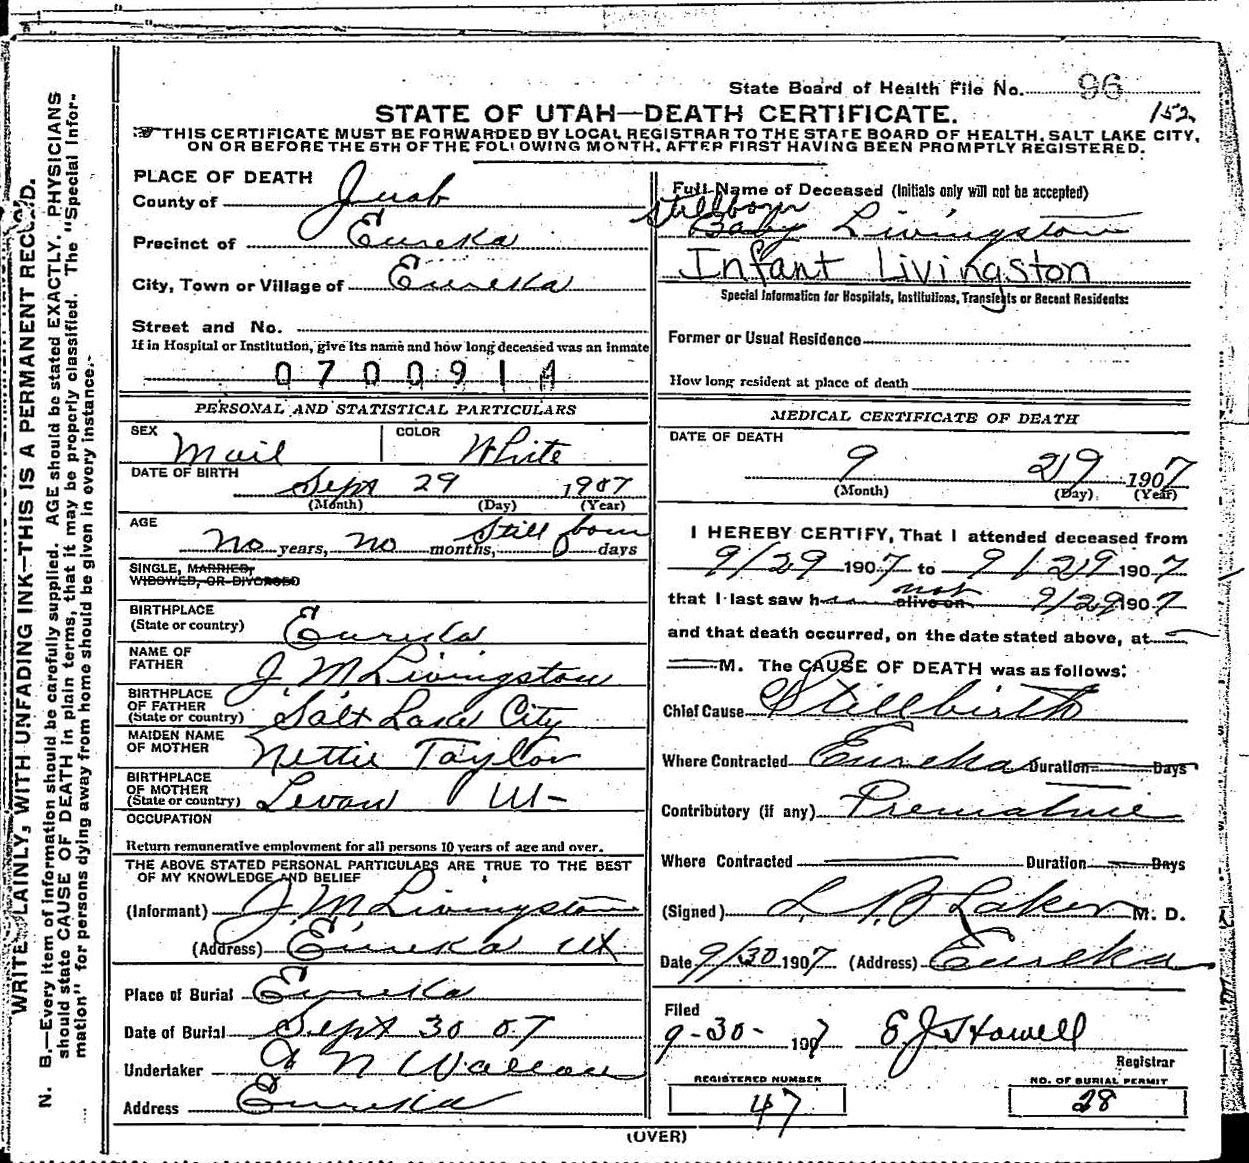 State Board of Health File No. 96
152
STATE OF UTAH—DEATH CERTIFICATE.
THIS CERTIFICATE MUST BE FORWARDED BY LOCAL REGISTRAR TO THE STATE BOARD OF HEALTH, SALT LAKE CITY,
ON OR BEFORE THE 5TH OF THE FOLLOWING MONTH, AFTER FIRST HAVING BEEN PROMPTLY REGISTERED.
WRITE PLAINLY, WITH UNFADING INK—THIS IS A PERMANENT RECORD.
N. B.—Every item of information should be carefully supplied. AGE should be stated EXACTLY. PHYSICIANS
should state CAUSE OF DEATH in plain terms, that it may be properly classified. The "Special Infor-
mation" for persons dying away from home should be given in every instance.
PLACE OF DEATH
County of Juab
Precinct of Eureka
City, Town or Village of Eureka
Street and No.
If in Hospital or Institution, give its name and how long deceased was an inmate
070091A
PERSONAL AND STATISTICAL PARTICULARS
SEX Mail COLOR White
DATE OF BIRTH Sept 29 1907
(Month) (Day) (Year)
AGE no years, no months, Still born days
SINGLE, MARRIED,
WIDOWED, OR DIVORCED
BIRTHPLACE
(State or country) Eureka
NAME OF
FATHER J. M. Livingston
BIRTHPLACE
OF FATHER
(State or country) Salt Lake City
MAIDEN NAME
OF MOTHER Nettie Taylor
BIRTHPLACE
OF MOTHER
(State or country) Levan Ut
OCCUPATION
Return remunerative employment for all persons 10 years of age and over.
THE ABOVE STATED PERSONAL PARTICULARS ARE TRUE TO THE BEST
OF MY KNOWLEDGE AND BELIEF
(Informant) J. M. Livingston
(Address) Eureka Ut
Place of Burial Eureka
Date of Burial Sept 30 07
Undertaker N
Address Eureka
Full Name of Deceased (Initials only will not be accepted)
Stillborn
Baby Livingston
Infant Livingston
Special Information for Hospitals, Institutions, Transients or Recent Residents:
Former or Usual Residence
How long resident at place of death
MEDICAL CERTIFICATE OF DEATH
DATE OF DEATH
9 29 1907
(Month) (Day) (Year)
I HEREBY CERTIFY, That I attended deceased from
9/29 1907 to 9/29 1907
that I last saw h not alive on 9/29 1907
and that death occurred, on the date stated above, at
M. The CAUSE OF DEATH was as follows:
Chief Cause Stillbirth
Where Contracted Eureka Duration Days
Contributory (if any) Premature
Where Contracted Duration Days
(Signed) Laker M. D.
Date 9/30 1907 (Address) Eureka
Filed
9-30- 1907 E J Howell
Registrar
REGISTERED NUMBER
47
NO. OF BURIAL PERMIT
28
(OVER)